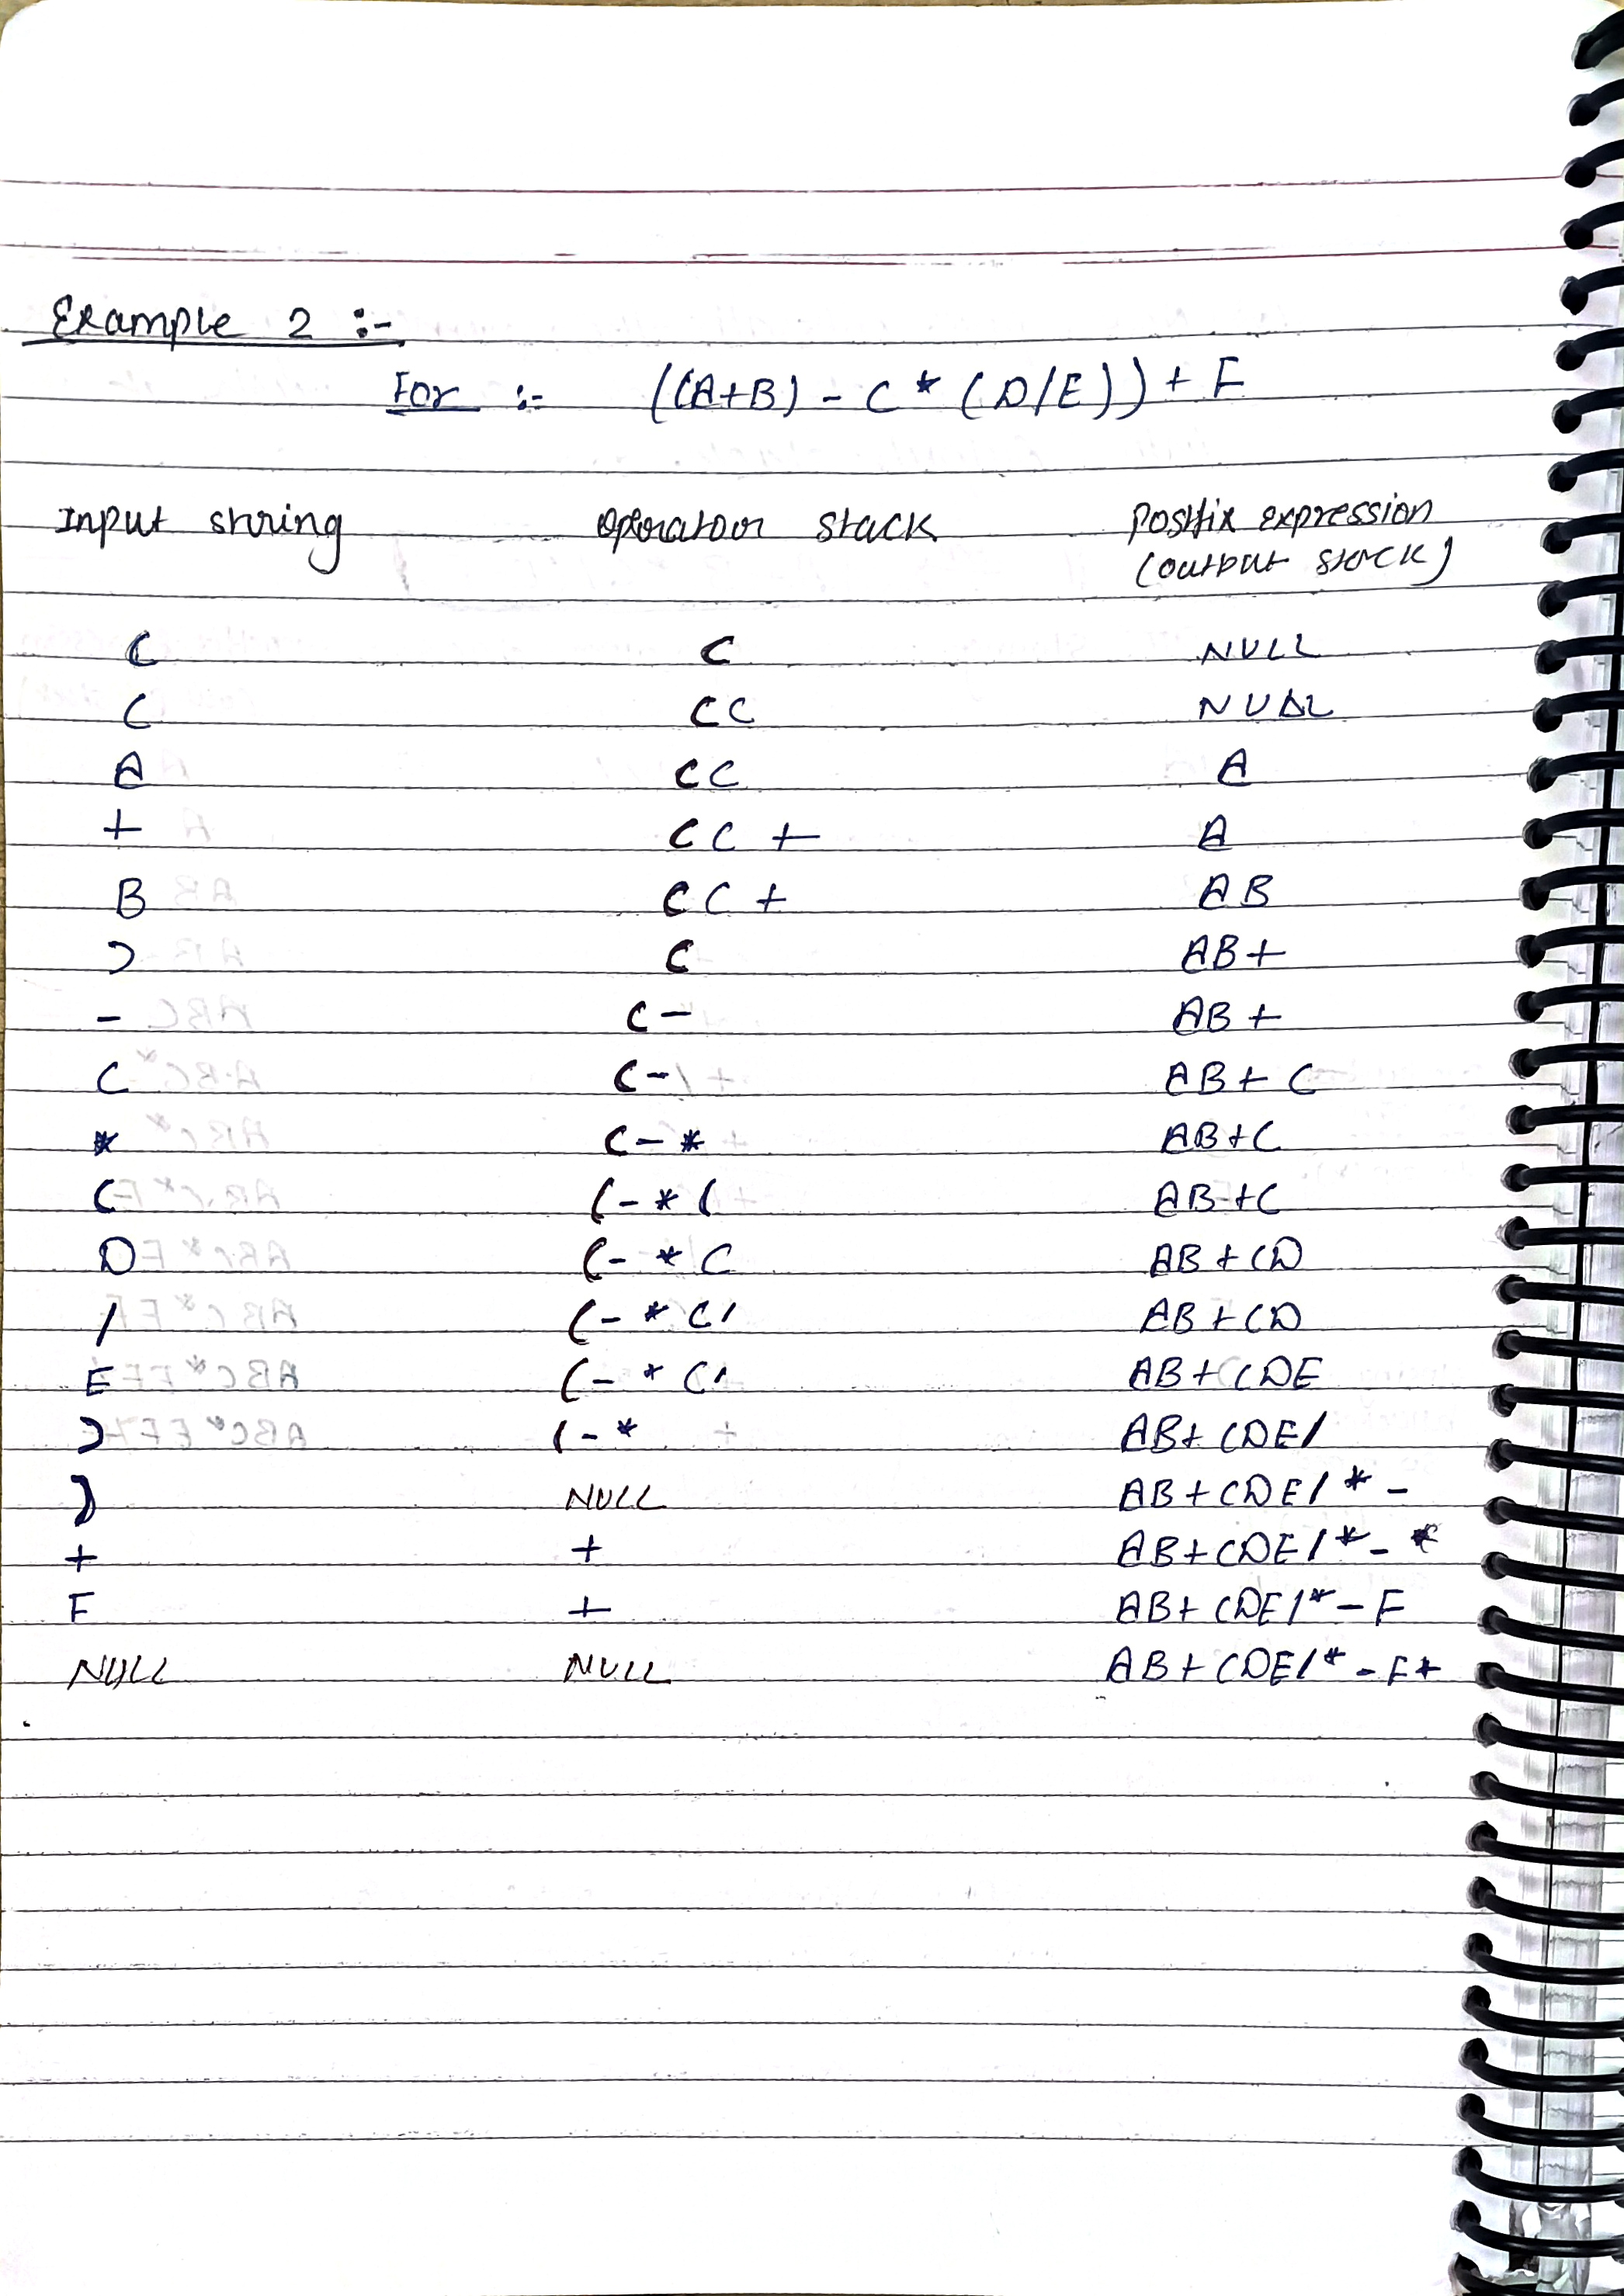 Example 2 :-
For :- ((A+B) - C * (D/E)) + F
Input string operator stack Postfix expression
(output stack)
( ( NULL
( (( NULL
A (( A
+ (( + A
B (( + AB
) ( AB+
- (- AB+
C (- AB+ C
* (-* AB+C
( (-*( AB+C
D (-*( AB+CD
/ (-*(/ AB+CD
E (-*(/ AB+CDE
) (-* AB+CDE/
) NULL AB+CDE/*-
+ + AB+CDE/*-
F + AB+CDE/*-F
NULL NULL AB+CDE/*-F+